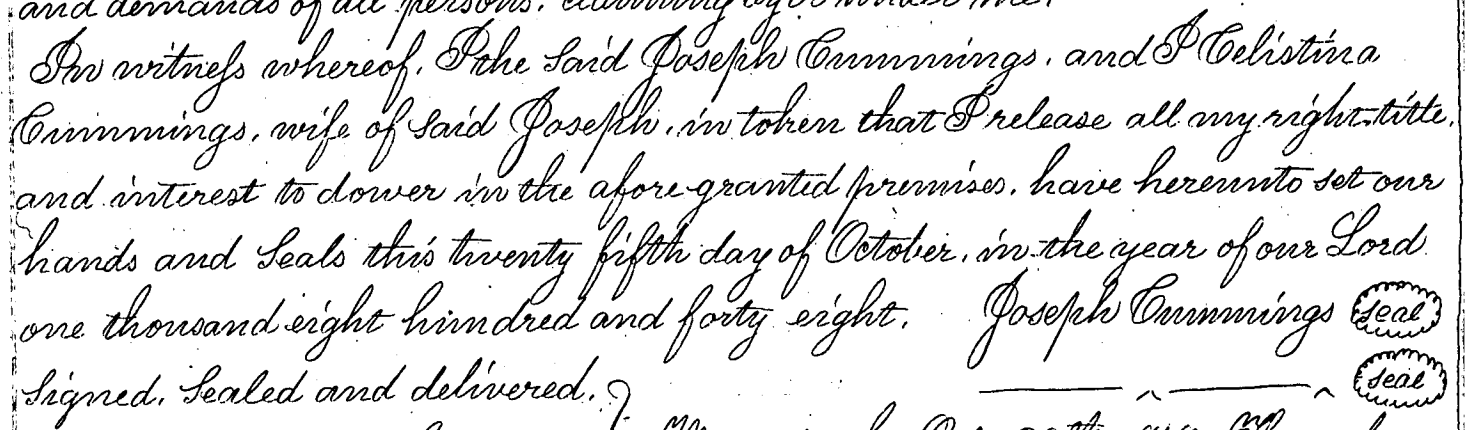 and demands of all persons, claiming by or under me.
In witness whereof, I the said Joseph Cummings, and I Celistina
Cummings, wife of said Joseph, in token that I release all my right, title,
and interest to dower in the afore granted premises, have hereunto set our
hands and seals this twenty fifth day of October, in the year of our Lord
one thousand eight hundred and forty eight. Joseph Cummings seal
Signed, Sealed and delivered. seal